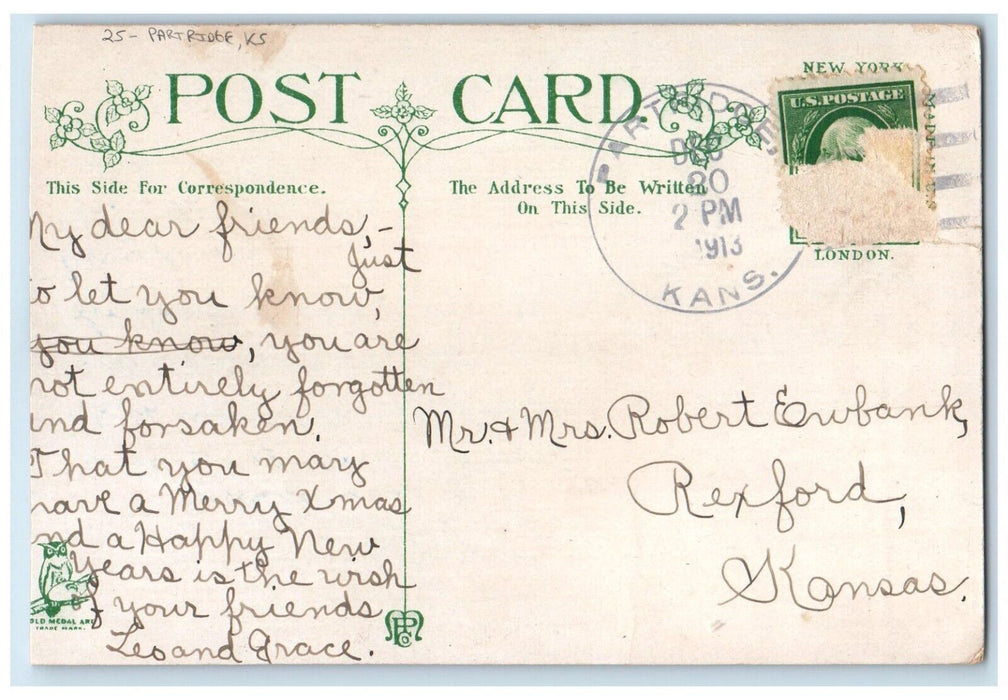 25- PARTRIDGE, KS
POST CARD.
NEW YORK
U.S.POSTAGE
MADE IN U.S.
LONDON.
PARTRIDGE,
DEC
20
2 PM
1913
KANS.
This Side For Correspondence.
The Address To Be Written
On This Side.
My dear friends,-
Just
to let you know,
you know, you are
not entirely forgotten
and forsaken.
That you may
have a Merry Xmas
and a Happy New
Years is the wish
of your friends
Leo and Grace.
Mr. & Mrs. Robert Ewbank,
Rexford,
Kansas.
GOLD MEDAL ART
TRADE MARK.